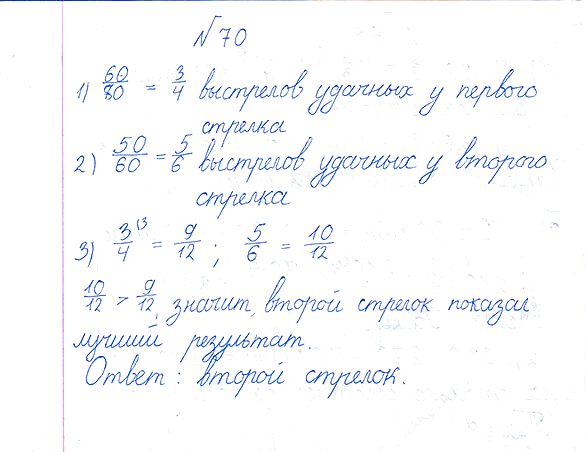 №70
1) 60/80 = 3/4 выстрелов удачных у первого
стрелка
2) 50/60 = 5/6 выстрелов удачных у второго
стрелка
3) 3/4 ⁽³ = 9/12 ; 5/6 = 10/12
10/12 > 9/12, значит, второй стрелок показал
лучший результат.
Ответ: второй стрелок.